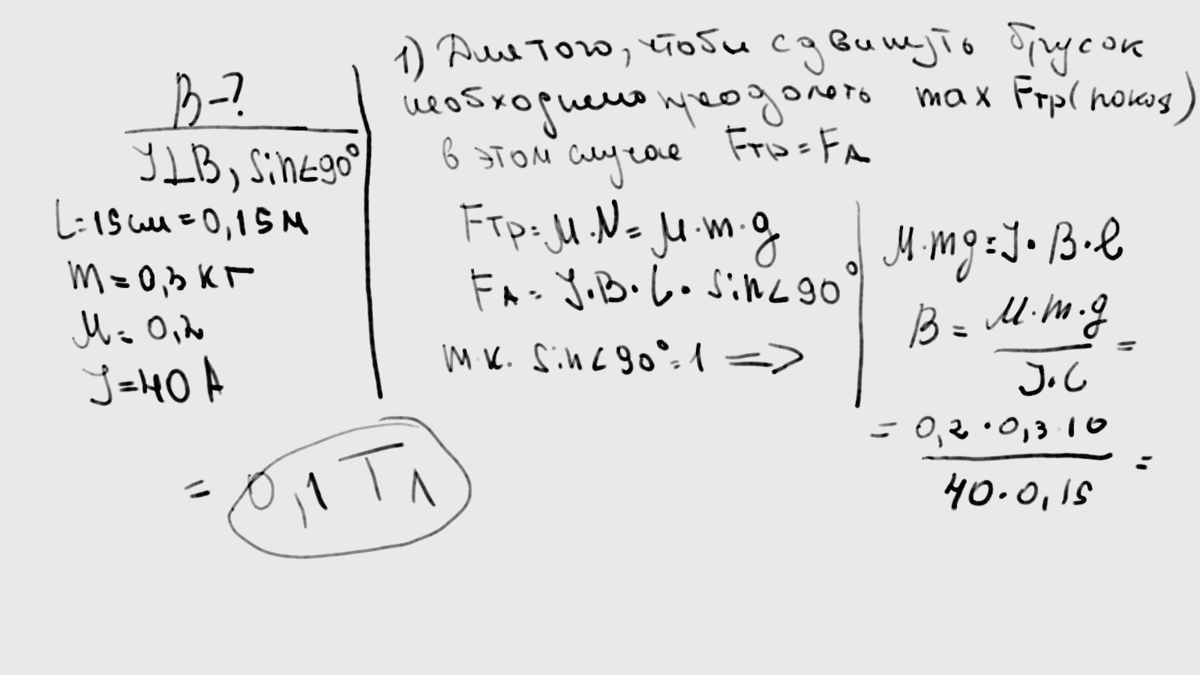 B-?
I⊥B, sin∠90°
L=15см=0,15м
m=0,3 кг
μ=0,2
I=40 А
1) Для того, чтобы сдвинуть брусок
необходимо преодолеть max Fтр(покоя)
в этом случае Fтр=FА
Fтр=μ·N=μ·m·g
FА=I·B·L·sin∠90°
т.к. sin∠90°=1 =>
μ·mg=I·B·ℓ
B = μ·m·g / I·L =
= 0,2·0,3·10 / 40·0,15 =
= 0,1 Тл